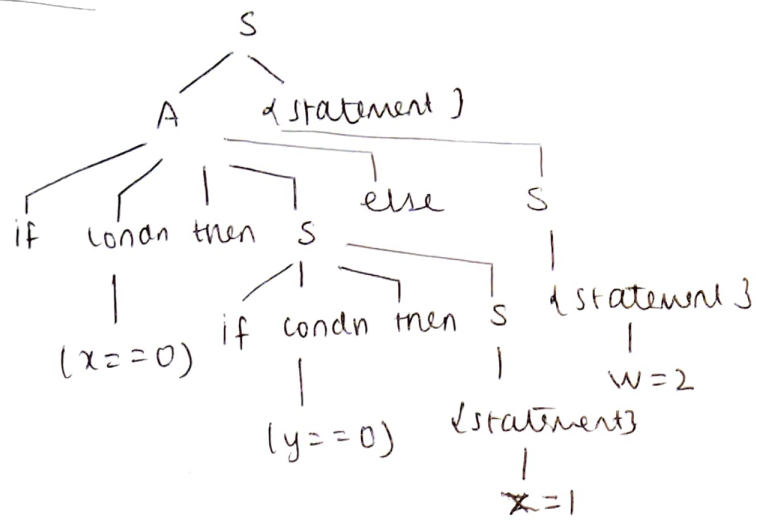 S
A {statement}
if condn then S else S
(x==0) if condn then S {statement}
(y==0) {statement} w=2
x=1